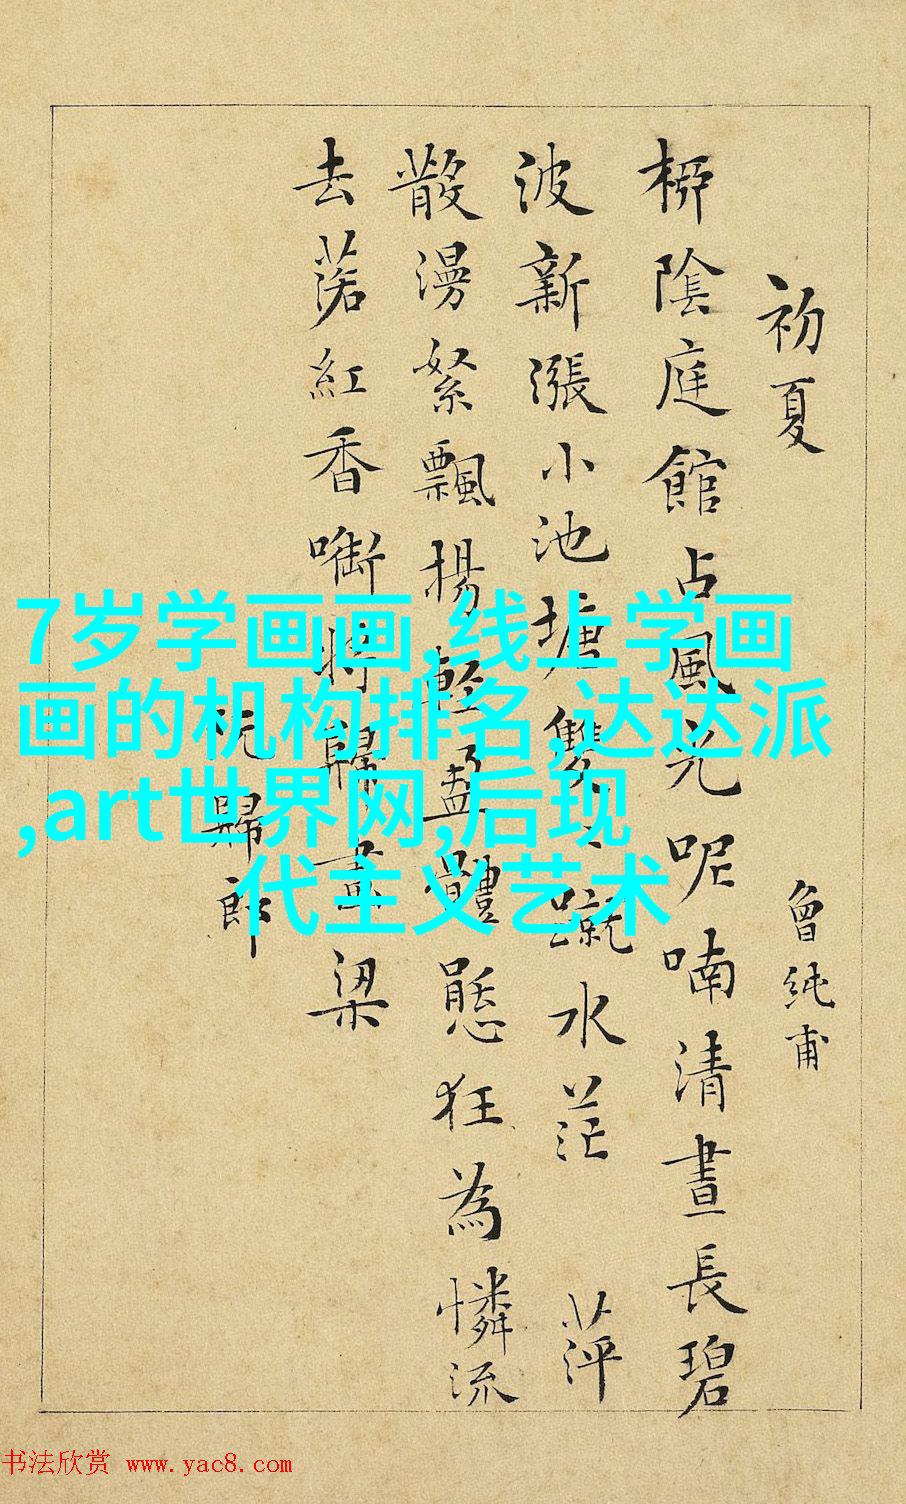 初夏 曾純甫
桺陰庭館占風光呢喃清晝長碧
波新漲小池塘雙〻蹴水茫 萍
散漫絮飄揚輕盈體態狂為憐流
去落紅香啣將歸畫梁
阮歸郎
7岁学画画,线上学画
画的机构排名,达达派
,art世界网,后现
代主义艺术
书法欣赏 www.yac8.com